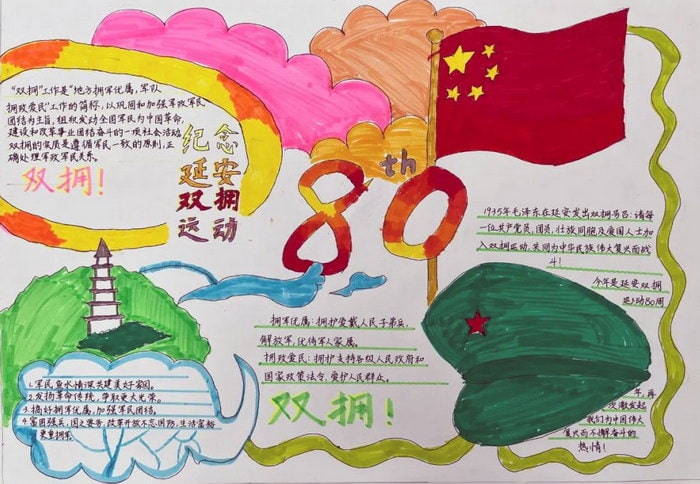 "双拥"工作是"地方拥军优属,军队
拥政爱民"工作的简称,以巩固和加强军政军民
团结为主旨,组织发动全国军民为中国革命,
建设和改革事业团结奋斗的一项社会活动
双拥的实质是遵循军民一致的原则,正
确处理军政军民关系。
双拥!
纪念
延安
双拥
运动
80th
1935年毛泽东在延安发出双拥号召:请每
一位共产党员,团员,壮族同胞及爱国人士加
入双拥运动,共同为中华民族伟大复兴而战
斗!
今年是延安双拥
运动80周
年,再
次激发起
我们为中国伟大
复兴而不懈奋斗的
热情!
拥军优属:拥护爱戴人民子弟兵,
解放军,优待军人家属。
拥政爱民:拥护支持各级人民政府和
国家政策法令,爱护人民群众。
双拥!
1.军民鱼水情深共建美好家园。
2.发扬革命传统,争取更大光荣。
3.搞好拥军优属,加强军民团结。
4.富国强兵,国之要务,改革开放不忘国防,生活富裕
更重拥军